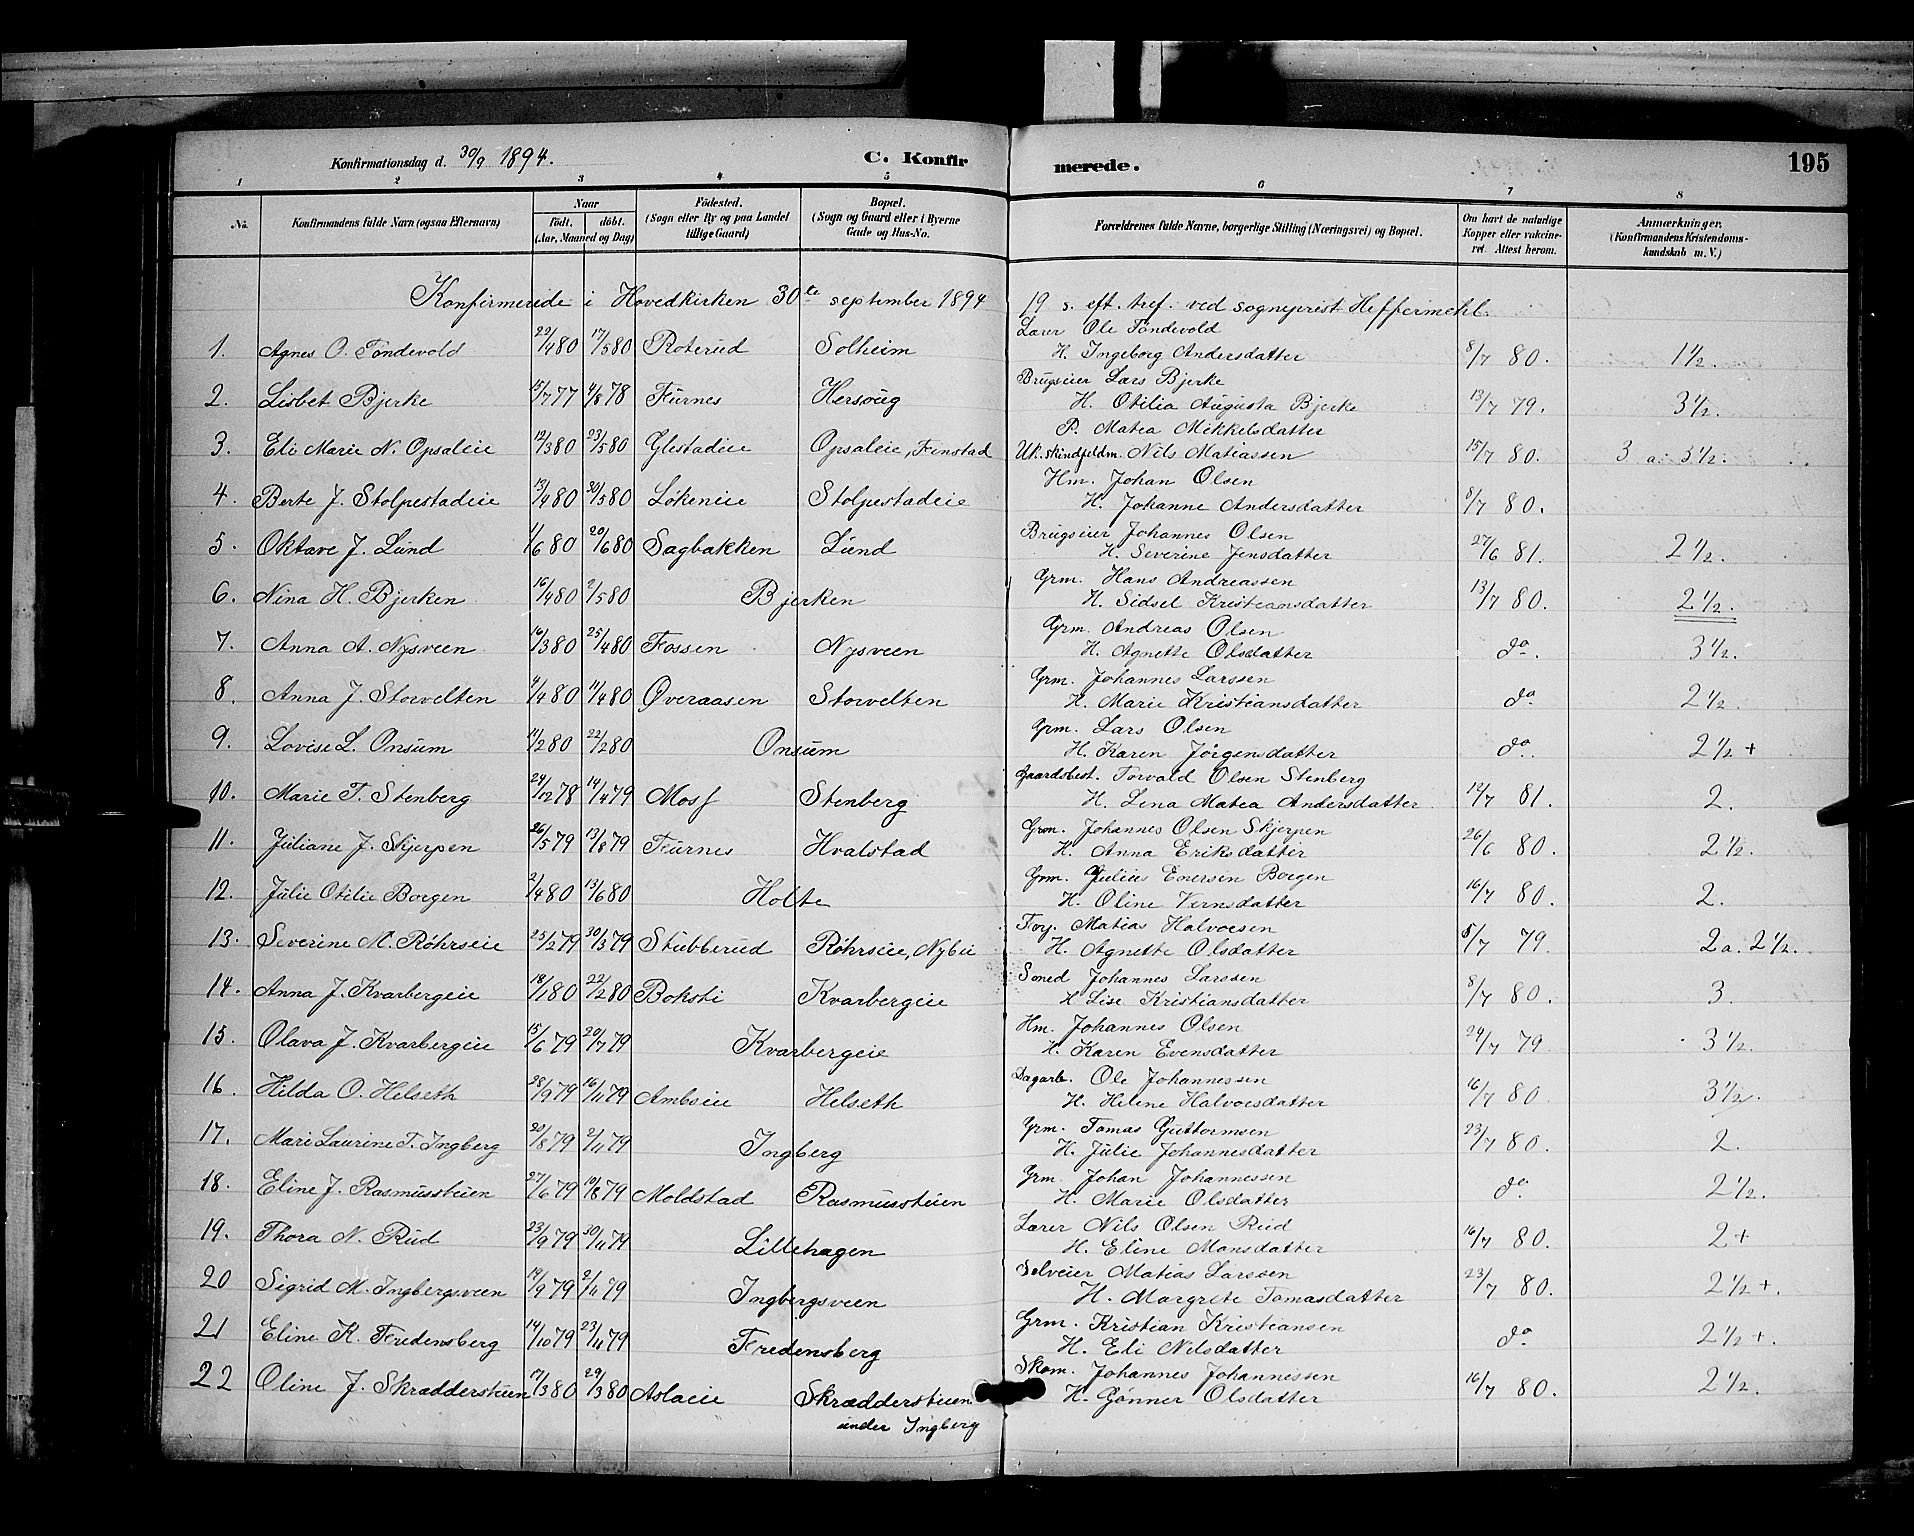 Konfirmationsdag d. 30/9 1894. C. Konfirmerede. 195
1 2 3 4 5 6 7 8
No. Konfirmandens fulde Navn (ogsaa Efternavn) Naar födt. döbt. (Aar, Maaned og Dag) Födested. (Sogn eller By og paa Landet tillige Gaard) Bopæl. (Sogn og Gaard eller i Byerne Gade og Hus-No. Forældrenes fulde Navne, borgerlige Stilling (Næringsvei) og Bopæl. Om havt de naturlige Kopper eller vakcineret. Attest herom. Anmærkninger. (Konfirmandens Kristendomskundskab m. V.)
Konfirmerede i Hovedkirken 30te september 1894 19 s. eft. tref. ved sogneprest Heffermehl.
1. Agnes O. Töndevold 22/4 80 17/5 80 Roterud Solheim Lærer Ole Töndevold H. Ingeborg Andersdatter 8/7 80. 1½.
2. Lisbet Bjerke 15/7 77 4/8 78 Furnes Hersoug Brugseier Lars Bjerke H. Otilia Augusta Bjerke 13/7 79. 3½.
3. Eli Marie N. Opsaleie 12/3 80 23/5 80 Glestadeie Opsaleie, Finstad P. Matea Mikkelsdatter Uk. skindfeldm. Nils Matiassen 15/7 80. 3 a. 3½.
4. Berte J. Stolpestadeie 13/4 80 30/5 80 Lökeneie Stolpestadeie Hm. Johan Olsen H. Johanne Andersdatter 8/7 80.
5. Oktave J. Lund 1/6 80 20/6 80 Sagbakken Lund Brugseier Johannes Olsen H. Severine Jensdatter 27/6 81. 2½.
6. Nina H. Bjerken 16/4 80 2/5 80 Bjerken Grm. Hans Andreassen H. Sidsel Kristiansdatter 13/7 80. 2½.
7. Anna A. Nysveen 16/3 80 25/4 80 Fossen Nysveen Grm. Andreas Olsen H. Agnette Olsdatter do. 3½.
8. Anna J. Storvelten 4/4 80 11/4 80 Överaasen Storvelten Grm. Johannes Larssen H. Marie Kristiansdatter do. 2½.
9. Lovise L. Onsum 11/2 80 22/2 80 Onsum Grm. Lars Olsen H. Karen Jörgensdatter do. 2½ +
10. Marie T. Stenberg 29/12 78 14/4 79 Mosf Stenberg Gaardsbest. Torvald Olsen Stenberg H. Lina Matea Andersdatter 12/7 81. 2.
11. Juliane J. Skjerpen 26/5 79 13/8 79 Furnes Hvalstad Grm. Johannes Olsen Skjerpen H. Anna Eriksdatter 26/6 80. 2½.
12. Julie Otilie Borgen 2/4 80 13/6 80 Holte Grm. Julius Enersen Borgen H. Oline Virnsdatter 16/7 80. 2.
13. Severine M. Röhrseie 25/2 79 30/3 79 Stubberud Röhrseie, Nybu Forp. Matias Halvorsen H. Agnette Olsdatter 5/7 79. 2 a. 2½.
14. Anna J. Kvarbergeie 18/1 80 22/2 80 Boksti Kvarbergeie Smed Johannes Larssen H. Lise Kristiansdatter 8/7 80. 3.
15. Olava J. Kvarbergeie 15/6 79 20/7 79 Kvarbergeie Hm. Johannes Olsen H. Karen Evensdatter 24/7 79. 3½.
16. Hilda O. Helseth 28/9 79 16/11 79 Ambseie Helseth Dagarb. Ole Johannessen H. Helene Halvorsdatter 16/7 80. 3½.
17. Mari Laurine T. Ingberg 20/8 79 2/11 79 Ingberg Grm. Tomas Guttormsen H. Julie Johannesdatter 23/7 80. 2.
18. Eline J. Rasmusstuen 27/6 79 10/8 79 Moldstad Rasmusstuen Grm. Johan Johannessen H. Marie Olsdatter do. 2½.
19. Thora N. Rud 23/9 79 30/11 79 Lillehagen Lærer Nils Olsen Rud H. Eline Monsdatter 16/7 80. 2 +
20 Sigrid M. Ingbergsveen 19/9 79 2/11 79 Ingbergsveen Selveier Matias Larssen H. Margrete Tomasdatter 23/7 80. 2½ +.
21 Eline K. Fredensberg 14/10 79 23/11 79 Fredensberg Grm. Kristian Kristiansen H. Eli Nilsdatter do. 2½ +.
22 Oline J. Skrædderstuen 17/3 80 29/3 80 Aslaeie Skrædderstuen under Ingberg Skom. Johannes Johannessen H. Gönner Olsdatter 16/7 80. 2½.